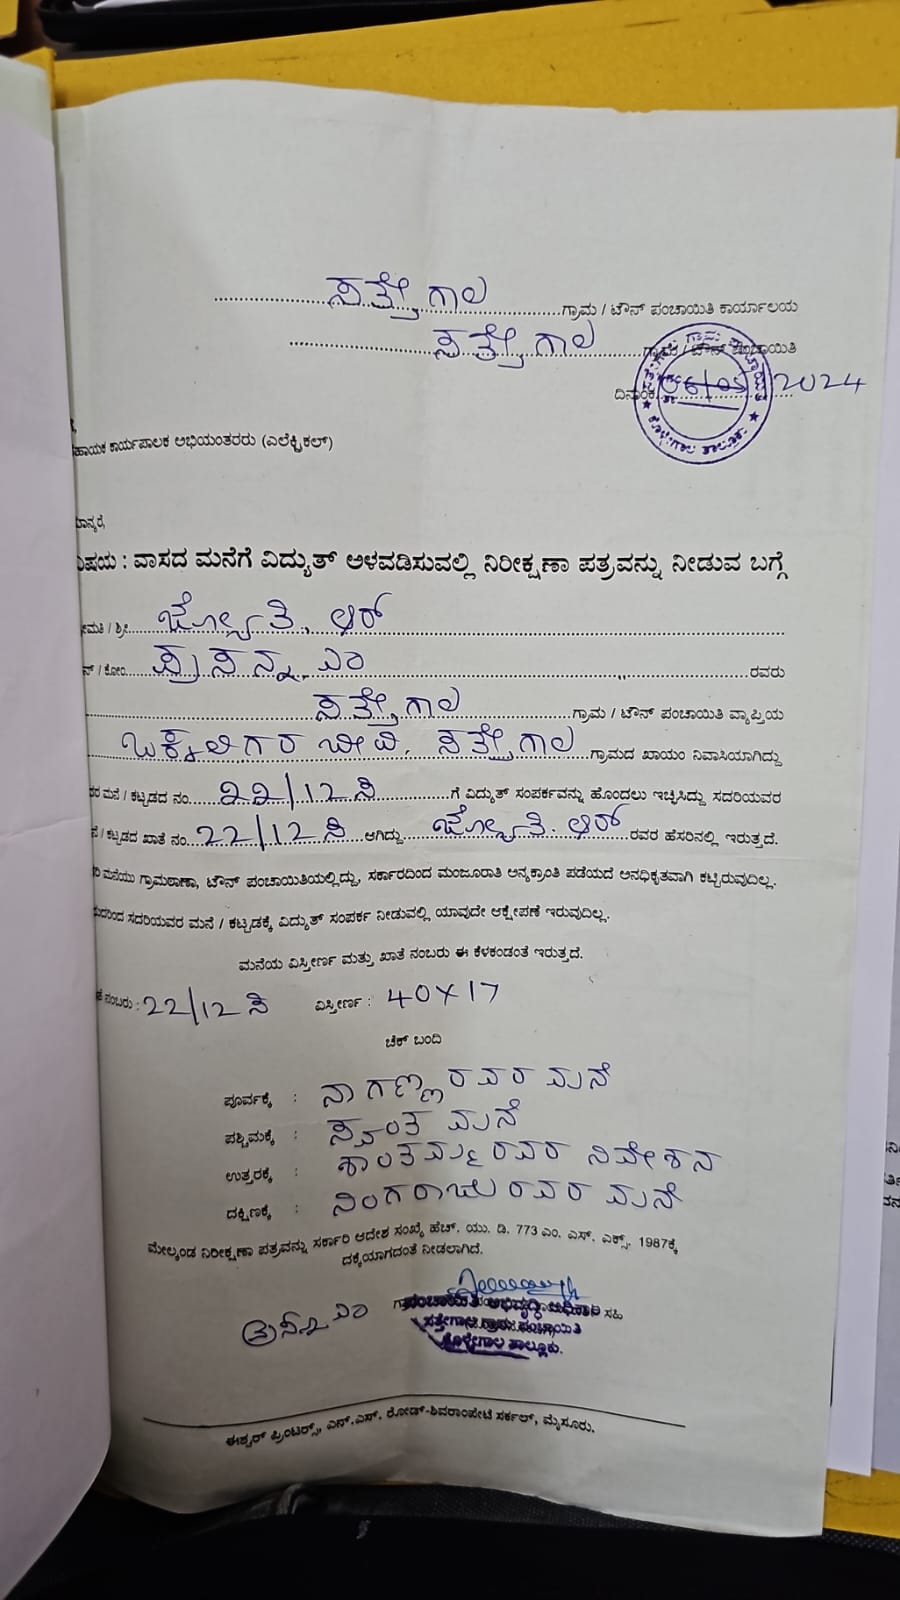 ಸತ್ತೇಗಾಲ ಗ್ರಾಮ / ಟೌನ್ ಪಂಚಾಯಿತಿ ಕಾರ್ಯಾಲಯ
ಸತ್ತೇಗಾಲ ಗ್ರಾಮ / ಟೌನ್ ಪಂಚಾಯಿತಿ
ದಿನಾಂಕ 06/05/2024
ಹಾಯಕ ಕಾರ್ಯಪಾಲಕ ಅಭಿಯಂತರರು (ಎಲೆಕ್ಟ್ರಿಕಲ್)
ಮಾನ್ಯರೆ,
ವಿಷಯ : ವಾಸದ ಮನೆಗೆ ವಿದ್ಯುತ್ ಅಳವಡಿಸುವಲ್ಲಿ ನಿರೀಕ್ಷಣಾ ಪತ್ರವನ್ನು ನೀಡುವ ಬಗ್ಗೆ
ೀಮತಿ / ಶ್ರೀ ಜ್ಯೋತಿ. ಆರ್
ನ್ / ಕೋಂ ಪ್ರಸನ್ನ. ಎಂ ರವರು
ಸತ್ತೇಗಾಲ ಗ್ರಾಮ / ಟೌನ್ ಪಂಚಾಯಿತಿ ವ್ಯಾಪ್ತಿಯ
ಒಕ್ಕಲಿಗರ ಬೀದಿ, ಸತ್ತೇಗಾಲ ಗ್ರಾಮದ ಖಾಯಂ ನಿವಾಸಿಯಾಗಿದ್ದು
ರರ ಮನೆ / ಕಟ್ಟಡದ ನಂ. 22/12 ಸಿ ಗೆ ವಿದ್ಯುತ್ ಸಂಪರ್ಕವನ್ನು ಹೊಂದಲು ಇಚ್ಛಿಸಿದ್ದು ಸದರಿಯವರ
ನೆ / ಕಟ್ಟಡದ ಖಾತೆ ನಂ. 22/12 ಸಿ ಆಗಿದ್ದು ಜ್ಯೋತಿ. ಆರ್ ರವರ ಹೆಸರಿನಲ್ಲಿ ಇರುತ್ತದೆ.
ರಿ ಮನೆಯು ಗ್ರಾಮಠಾಣಾ, ಟೌನ್ ಪಂಚಾಯಿತಿಯಲ್ಲಿದ್ದು, ಸರ್ಕಾರದಿಂದ ಮಂಜೂರಾತಿ ಅನ್ಯಕ್ರಾಂತಿ ಪಡೆಯದೆ ಅನಧಿಕೃತವಾಗಿ ಕಟ್ಟಿರುವುದಿಲ್ಲ.
ುದರಿಂದ ಸದರಿಯವರ ಮನೆ / ಕಟ್ಟಡಕ್ಕೆ ವಿದ್ಯುತ್ ಸಂಪರ್ಕ ನೀಡುವಲ್ಲಿ ಯಾವುದೇ ಆಕ್ಷೇಪಣೆ ಇರುವುದಿಲ್ಲ.
ಮನೆಯ ವಿಸ್ತೀರ್ಣ ಮತ್ತು ಖಾತೆ ನಂಬರು ಈ ಕೆಳಕಂಡಂತೆ ಇರುತ್ತದೆ.
ತೆ ನಂಬರು : 22/12 ಸಿ ವಿಸ್ತೀರ್ಣ : 40 X 17
ಚೆಕ್ ಬಂದಿ
ಪೂರ್ವಕ್ಕೆ : ನಾಗಣ್ಣರವರ ಮನೆ
ಪಶ್ಚಿಮಕ್ಕೆ : ಸ್ವಂತ ಮನೆ
ಉತ್ತರಕ್ಕೆ : ಶಾಂತಮ್ಮರವರ ನಿವೇಶನ
ದಕ್ಷಿಣಕ್ಕೆ : ನಿಂಗರಾಜುರವರ ಮನೆ
ಮೇಲ್ಕಂಡ ನಿರೀಕ್ಷಣಾ ಪತ್ರವನ್ನು ಸರ್ಕಾರಿ ಆದೇಶ ಸಂಖ್ಯೆ ಹೆಚ್. ಯು. ಡಿ. 773 ಎಂ. ಎಸ್. ಎಕ್ಸ್. 1987ಕ್ಕೆ
ದಕ್ಕೆಯಾಗದಂತೆ ನೀಡಲಾಗಿದೆ.
ಸಹಿ
ಪಂಚಾಯಿತಿ ಅಭಿವೃದ್ಧಿ ಅಧಿಕಾರಿ
ಸತ್ತೇಗಾಲ ಗ್ರಾಮ ಪಂಚಾಯಿತಿ
ಕೊಳ್ಳೇಗಾಲ ತಾಲ್ಲೂಕು.
ಈಶ್ವರ್ ಪ್ರಿಂಟರ್ಸ್, ಎನ್.ಎಸ್. ರೋಡ್-ಶಿವರಾಂಪೇಟೆ ಸರ್ಕಲ್, ಮೈಸೂರು.